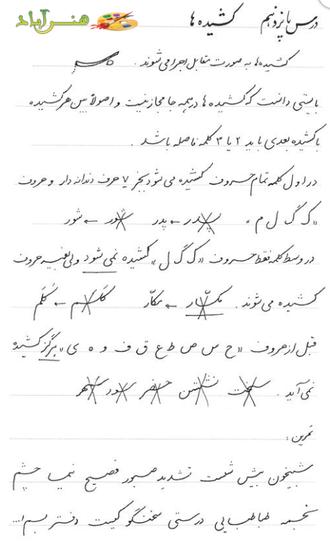 درس پانزدهم کشیده ها
هنرآباد
کشیده ها به صورت مقابل اجرا می شوند.
بایستی دانست که کشیده ها در همه جا مجاز نیست و اصولاً بین هر کشیده
با کشیده بعدی باید ۲ یا ۳ کلمه فاصله باشد.
در اول کلمه تمام حروف کشیده می شود بجز ۷ حرف دندانه دار و حروف
«ک گ ل م» پدر ← پدر شور ← شور
در وسط کلمه فقط حروف «ک گ ل» کشیده نمی شود ولی بقیه حروف
کشیده می شوند. مکار ← مکّار کلم ← کَلَم
قبل از حروف «ح س ص ط ع ق ف و ه ی» هرگز کشیده
نمی آید. سخت حضر شور
تمرین:
شبیخون بیش شصت تشدید صبور فصیح نمی چشم
نخجمه طباطبایی درستی سخنگو کمیت دفتر بسم ...